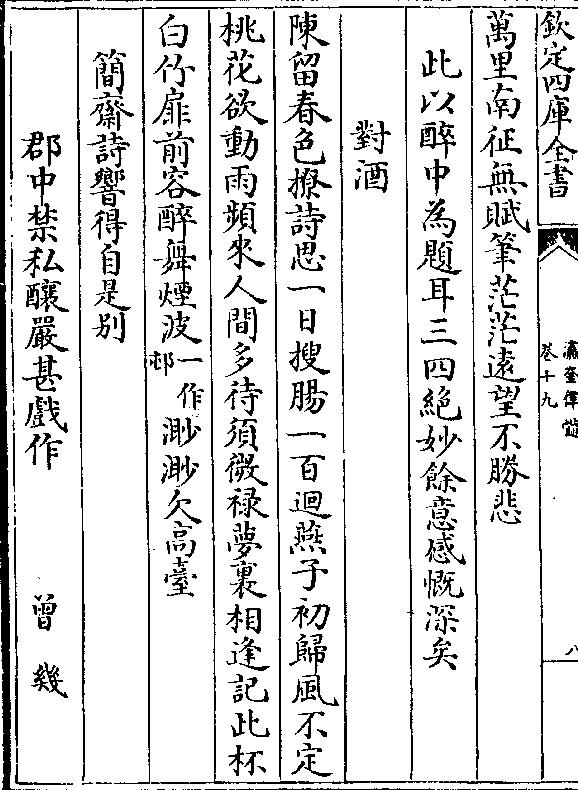 欽定四庫全書
瀛奎律髓
卷十九
八
萬里南征無賦筆茫茫遠望不勝悲
此以醉中為題耳三四絕妙餘意感慨深矣
對酒
陳留春色撩詩思一日搜腸一百迴燕子初歸風不定
桃花欲動雨頻來人間多待須微祿夢裏相逢記此杯
白竹扉前容醉舞煙波一作邨渺渺欠高臺
簡齋詩響得自是别
郡中禁私釀嚴甚戲作 曾幾